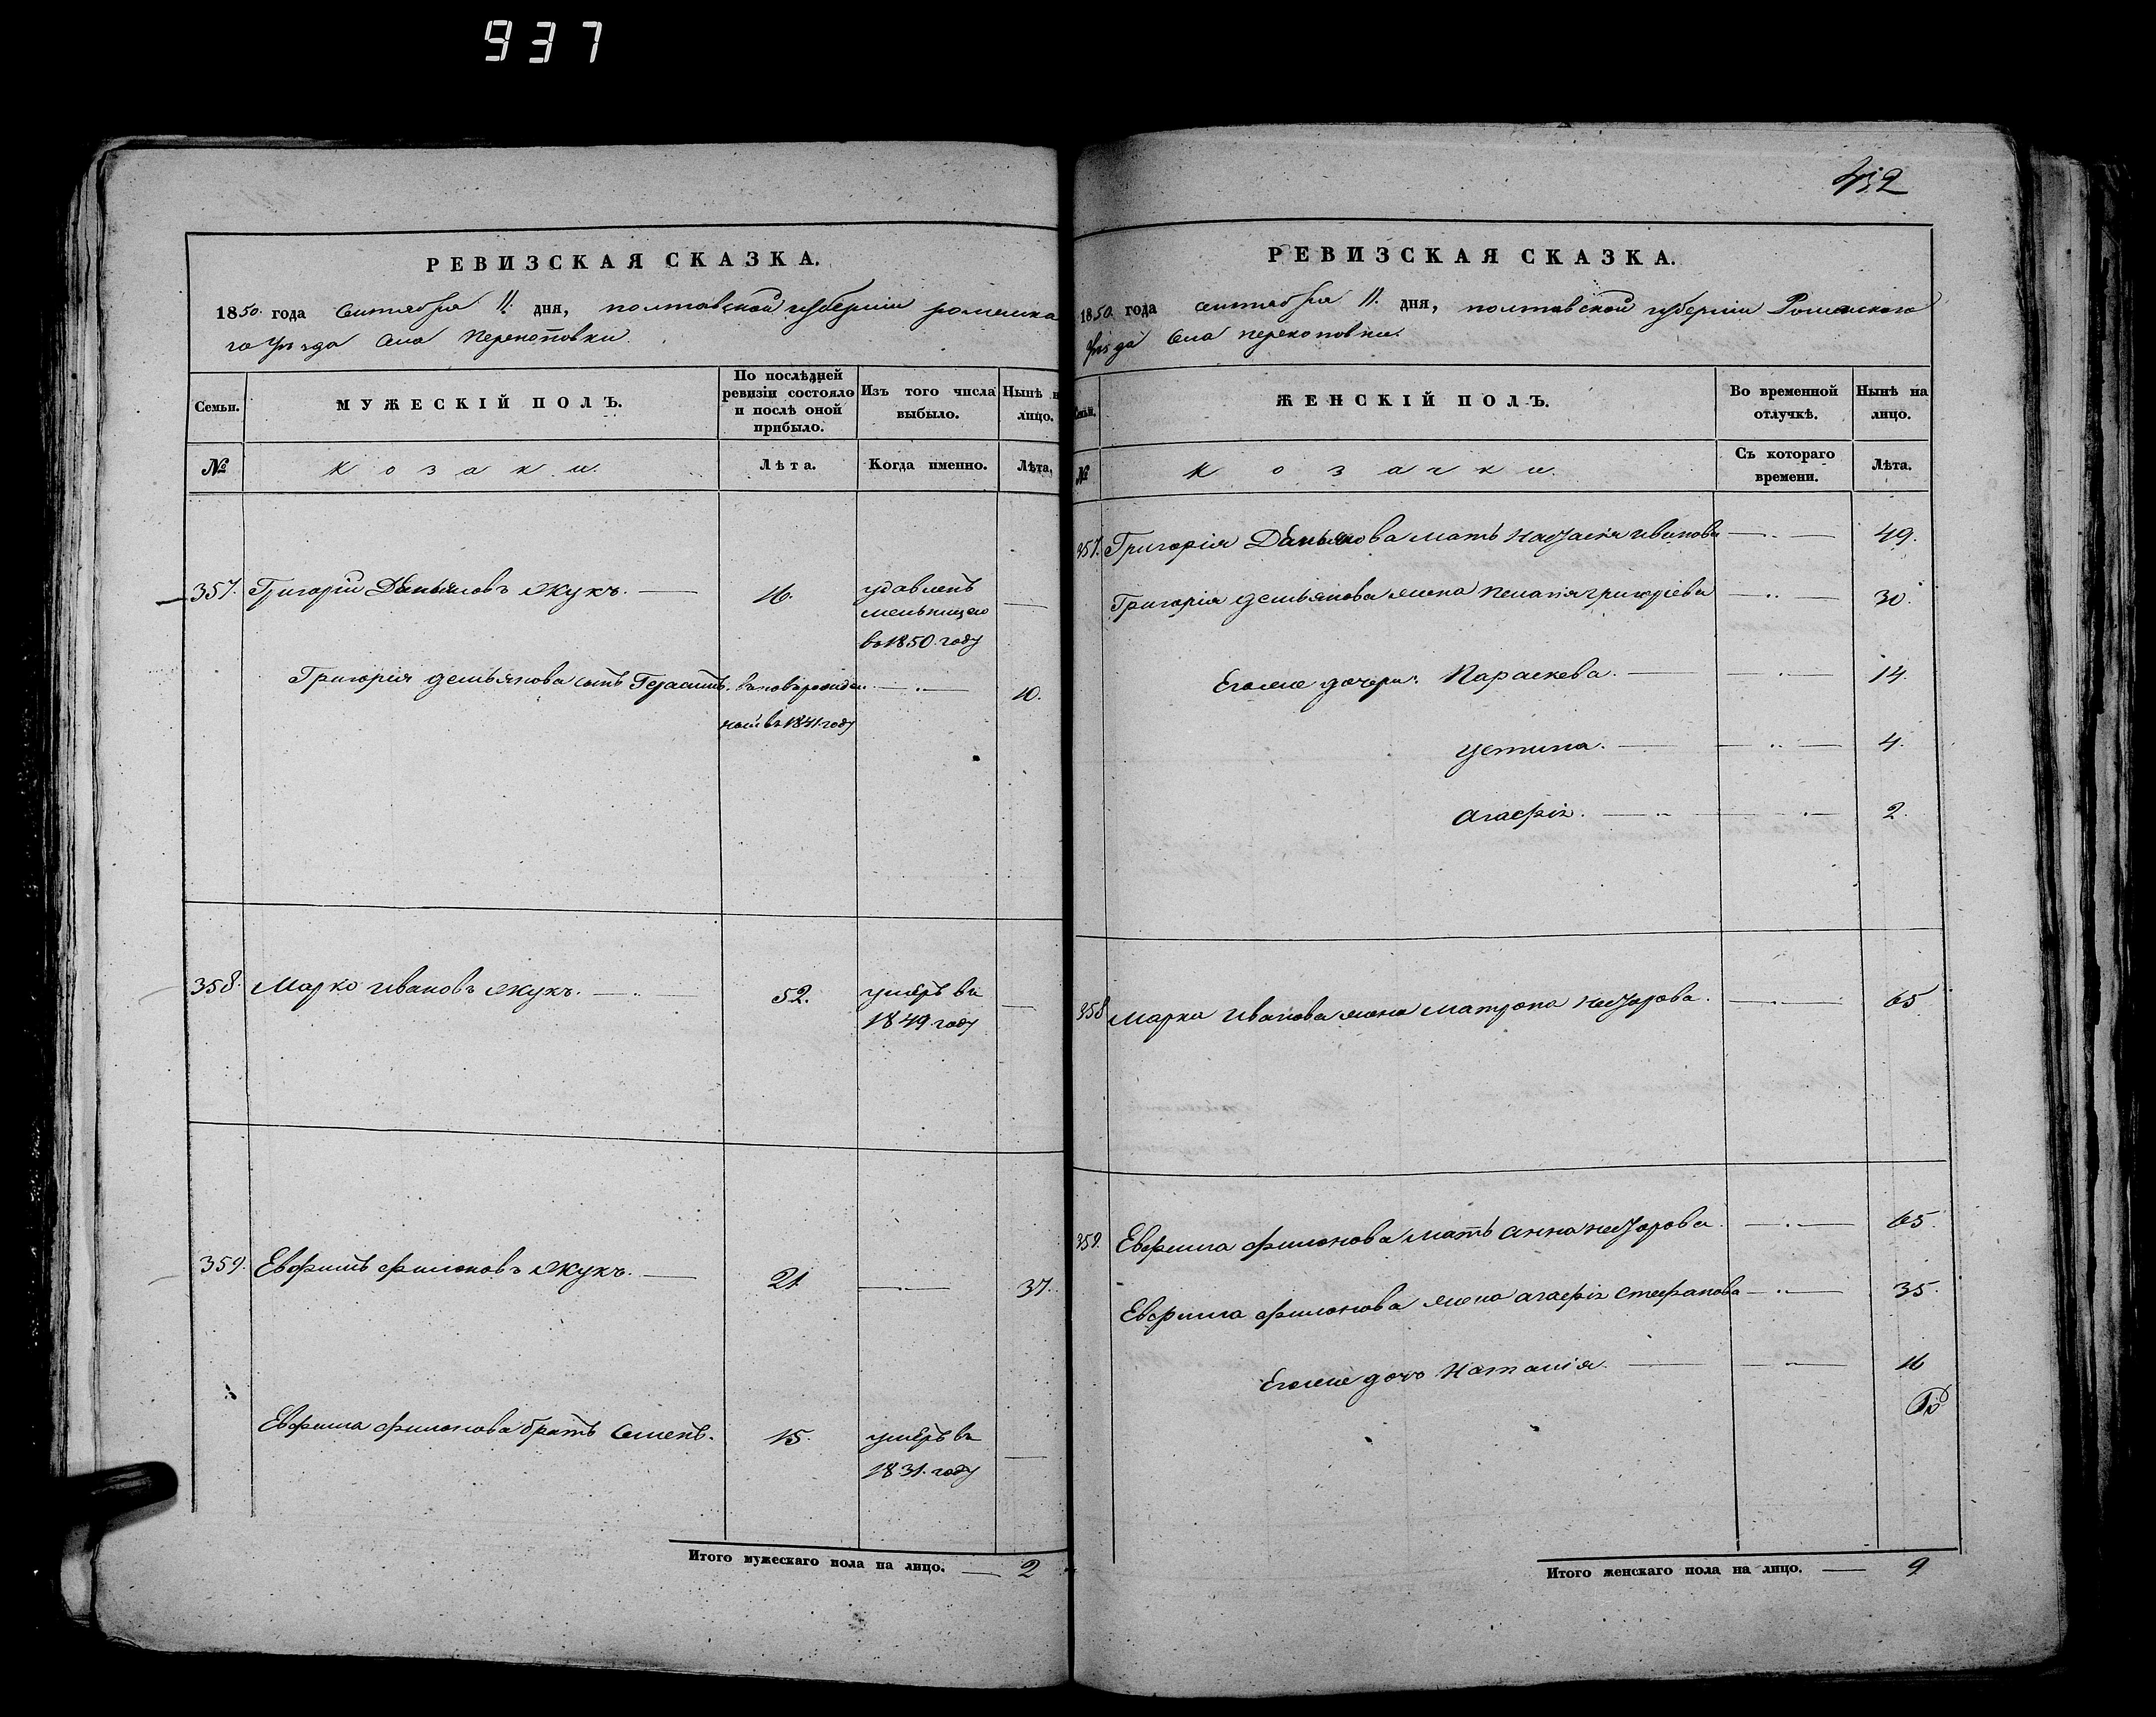 937
432
РЕВИЗСКАЯ СКАЗКА.
1850 года Сентября 11. дня, полтавской губернии ромскаго
уѣзда Села Перекоповки.
Семьи.
МУЖЕСКІЙ ПОЛЪ.
По послѣдней
ревизіи состояло
и послѣ оной
прибыло.
Изъ того числа
выбыло.
Нынѣ н
лицо.
№
Козаки.
Лѣта.
Когда именно.
Лѣта.
357. Григорій Демьяновъ Жукъ. 16. удавленъ
мельницею
въ 1850. году
Григорія демьянова сынъ Герасимъ. вновьрожден 10.
ный въ 1841. году
358. Марко Ивановъ Жукъ. 52. умеръ въ
1849 году
359. Евфимъ филоновъ Жукъ. 21 37.
Евфима филонова братъ Семенъ. 15. умеръ въ
1831. году
Итого мужескаго пола на лицо. 2
РЕВИЗСКАЯ СКАЗКА.
1850 года сентября 11. дня, полтавской губерніи Роменскаго
уѣзда Села перекоповки.
Семьи.
ЖЕНСКІЙ ПОЛЪ.
Во временной
отлучкѣ.
Нынѣ на
лицо.
№
Козачки.
Съ котораго
времени.
Лѣта.
357. Григорія Демьянова мать Настасія иванова 49.
Григорія демьянова жена Пелагія григоріева 30.
Егоже дочери: Параскева. 14.
Устина. 4.
агафія. 2.
358 Марка Иванова жена матрона Несторова. 65
359. Евфима филонова мать анна несторова. 65.
Евфима филонова жена агафія Стефанова 35.
Егоже дочь Наталія 16
Итого женскаго пола на лицо. 9